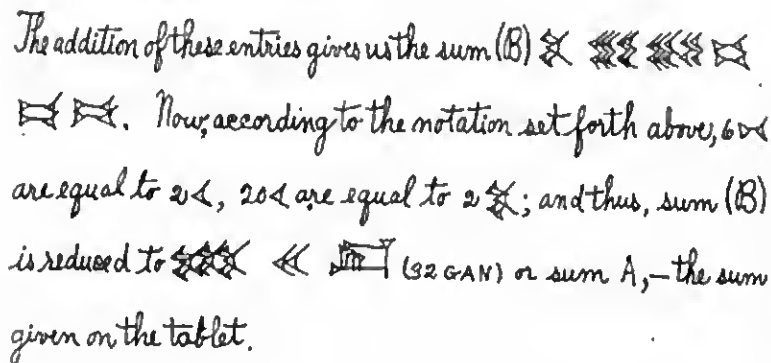 The addition of these entries gives us the sum (B)
. Now, according to the notation set forth above, 6
are equal to 2 , 20 are equal to 2 ; and thus, sum (B)
is reduced to (32 GAN) or sum A, – the sum
given on the tablet.